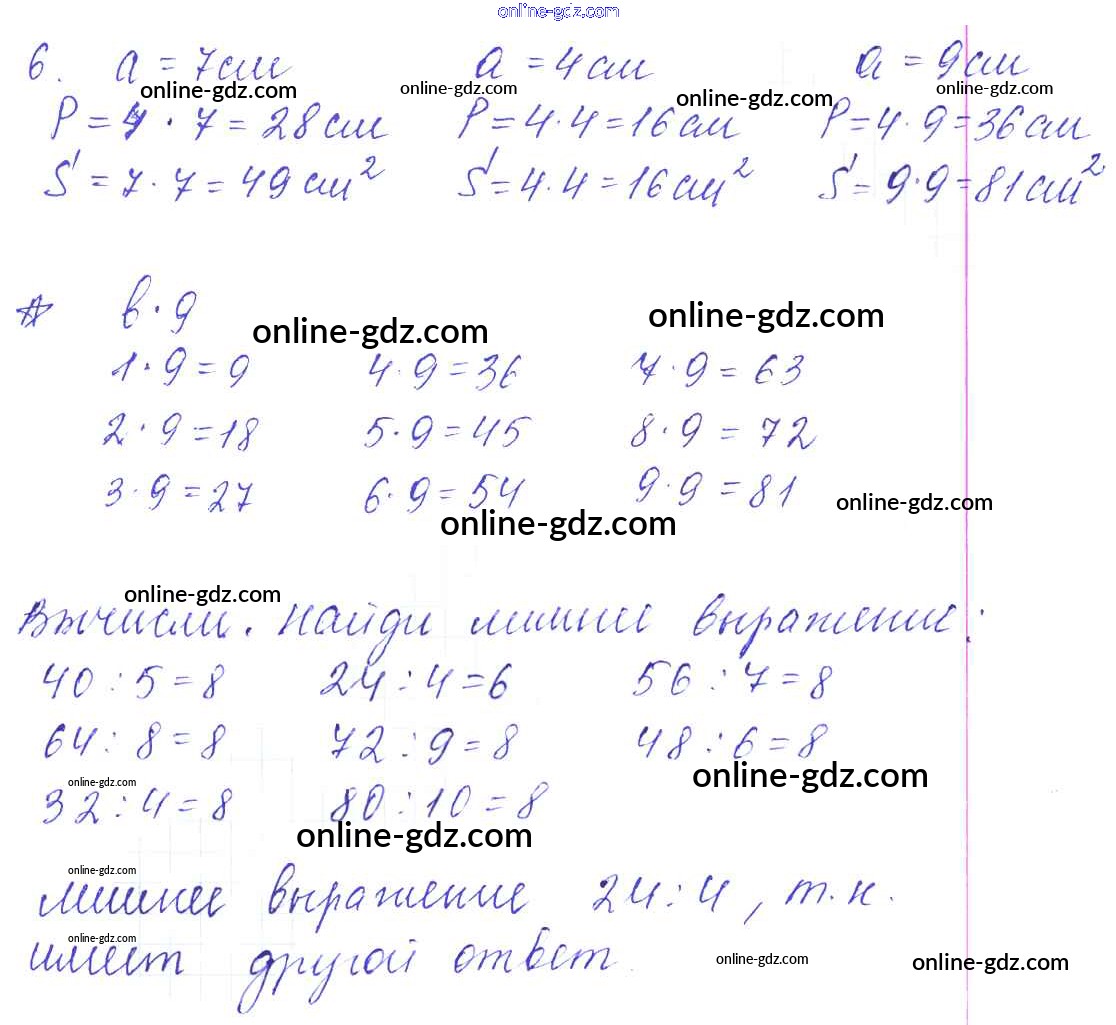 online-gdz.com
6. a = 7см a = 4см a = 9см
online-gdz.com online-gdz.com online-gdz.com online-gdz.com
P = 4 · 7 = 28см P = 4 · 4 = 16см P = 4 · 9 = 36см
S = 7 · 7 = 49см² S = 4 · 4 = 16см² S = 9 · 9 = 81см²
* в · 9
online-gdz.com online-gdz.com
1 · 9 = 9 4 · 9 = 36 7 · 9 = 63
2 · 9 = 18 5 · 9 = 45 8 · 9 = 72
3 · 9 = 27 6 · 9 = 54 9 · 9 = 81
online-gdz.com online-gdz.com
online-gdz.com
Вычисли. Найди лишнее выражение:
40 : 5 = 8 24 : 4 = 6 56 : 7 = 8
64 : 8 = 8 72 : 9 = 8 48 : 6 = 8
online-gdz.com online-gdz.com
32 : 4 = 8 80 : 10 = 8
online-gdz.com
online-gdz.com
лишнее выражение 24 : 4, т.к.
online-gdz.com
имеет другой ответ.
online-gdz.com online-gdz.com